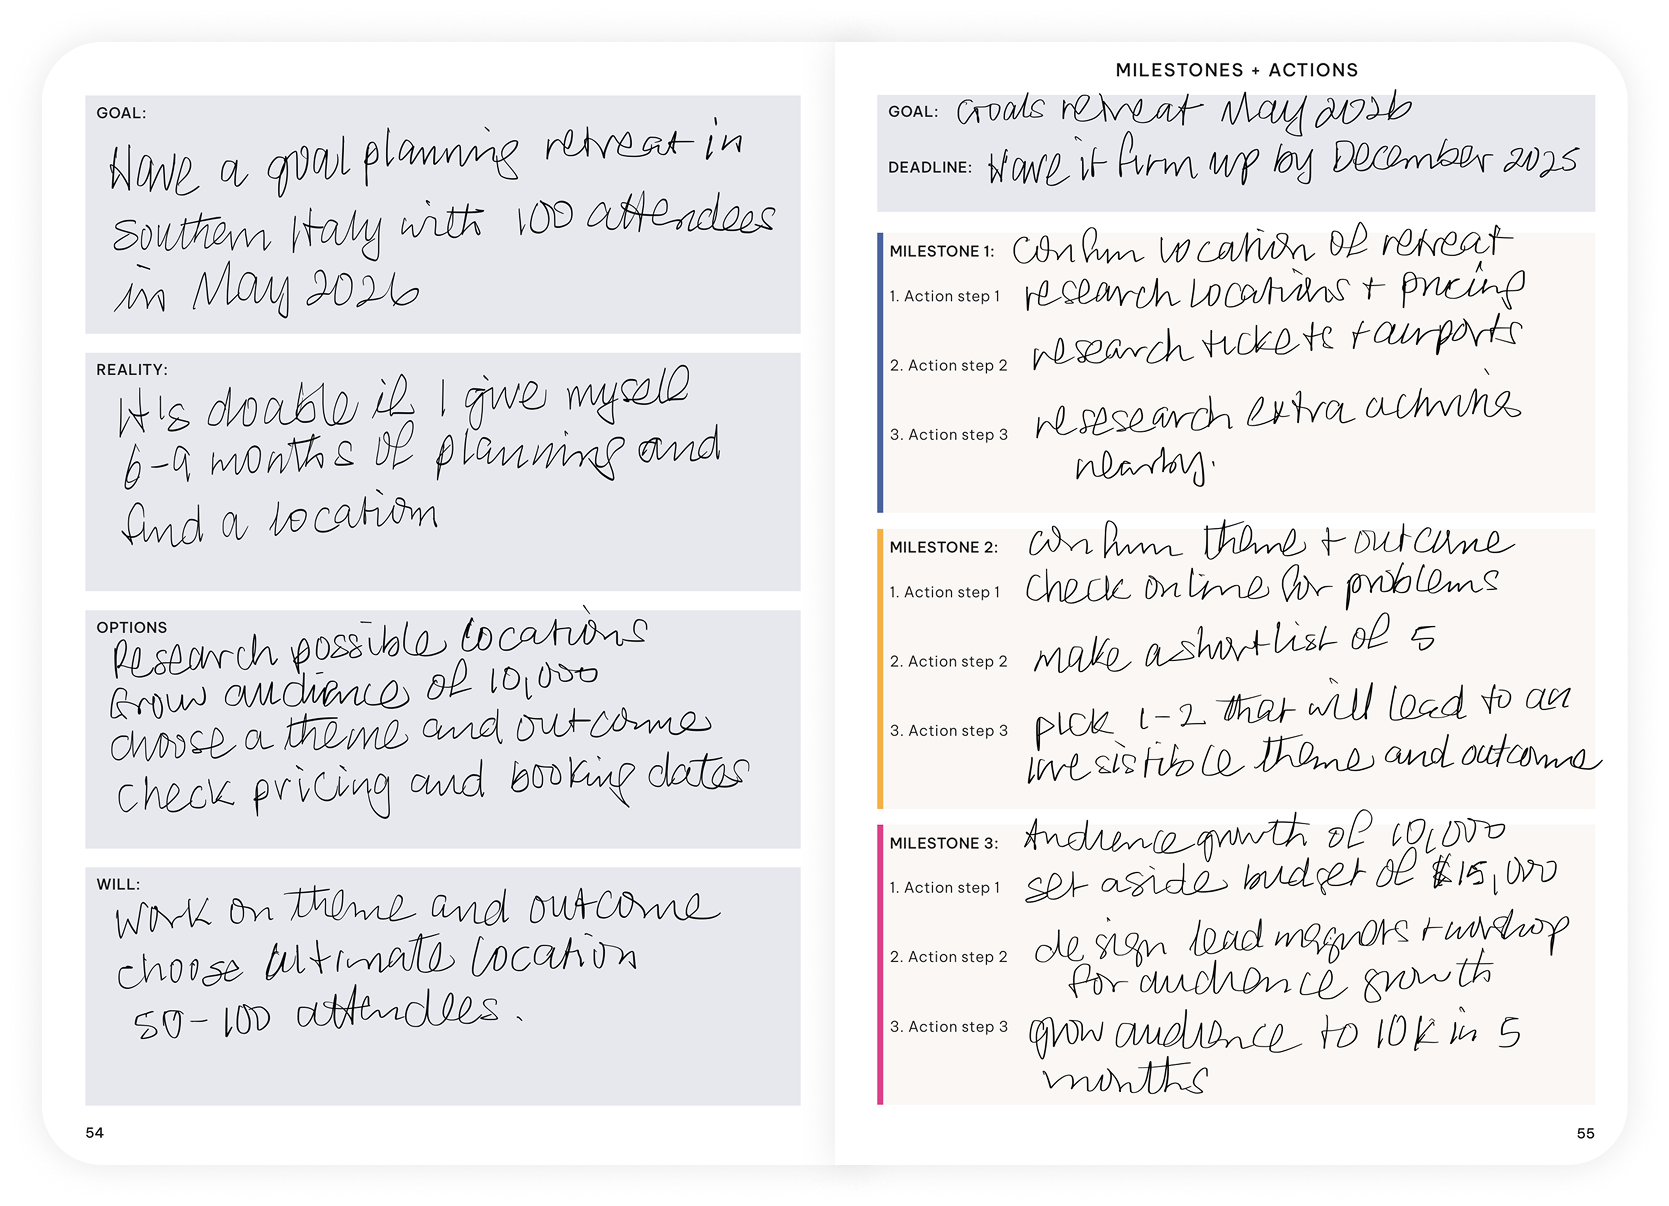 GOAL:
Have a goal planning retreat in
Southern Italy with 100 attendees
in May 2026
REALITY:
It's doable if I give myself
6-9 months of planning and
find a location
OPTIONS
Research possible locations
Grow audience of 10,000
choose a theme and outcome
check pricing and booking dates
WILL:
Work on theme and outcome
choose ultimate location
50-100 attendees.
54
MILESTONES + ACTIONS
GOAL: Goals retreat May 2026
DEADLINE: Have it firm up by December 2025
MILESTONE 1: confirm location of retreat
1. Action step 1 research locations + pricing
2. Action step 2 research tickets + airports
3. Action step 3 resesearch extra activities
nearby.
MILESTONE 2: confirm theme + outcome
1. Action step 1 check online for problems
2. Action step 2 make a shortlist of 5
3. Action step 3 pick 1-2 that will lead to an
irresistible theme and outcome
MILESTONE 3: Audience growth of 10,000
1. Action step 1 set aside budget of $15,000
2. Action step 2 design lead magnets + workshop
for audience growth
3. Action step 3 grow audience to 10k in 5
months
55